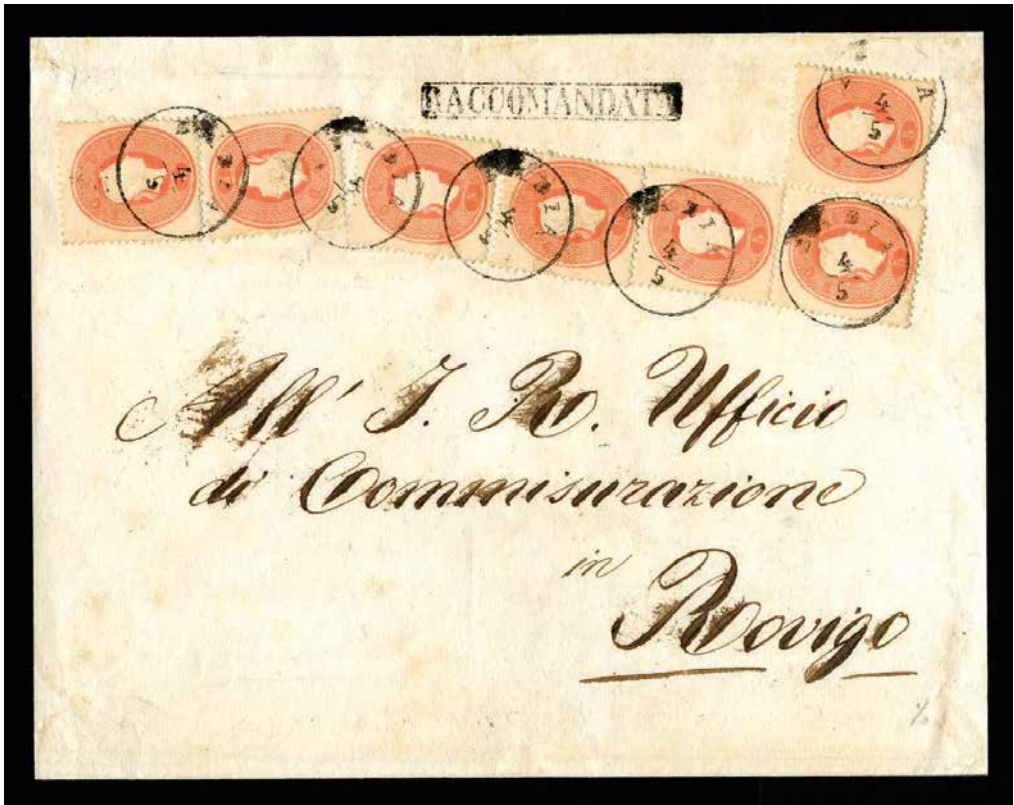 RACCOMANDATA
4
5
4
5
4
5
4
5
4
5
4
5
4
5
All' I. R. Ufficio
di Commisurazione
in
Rovigo